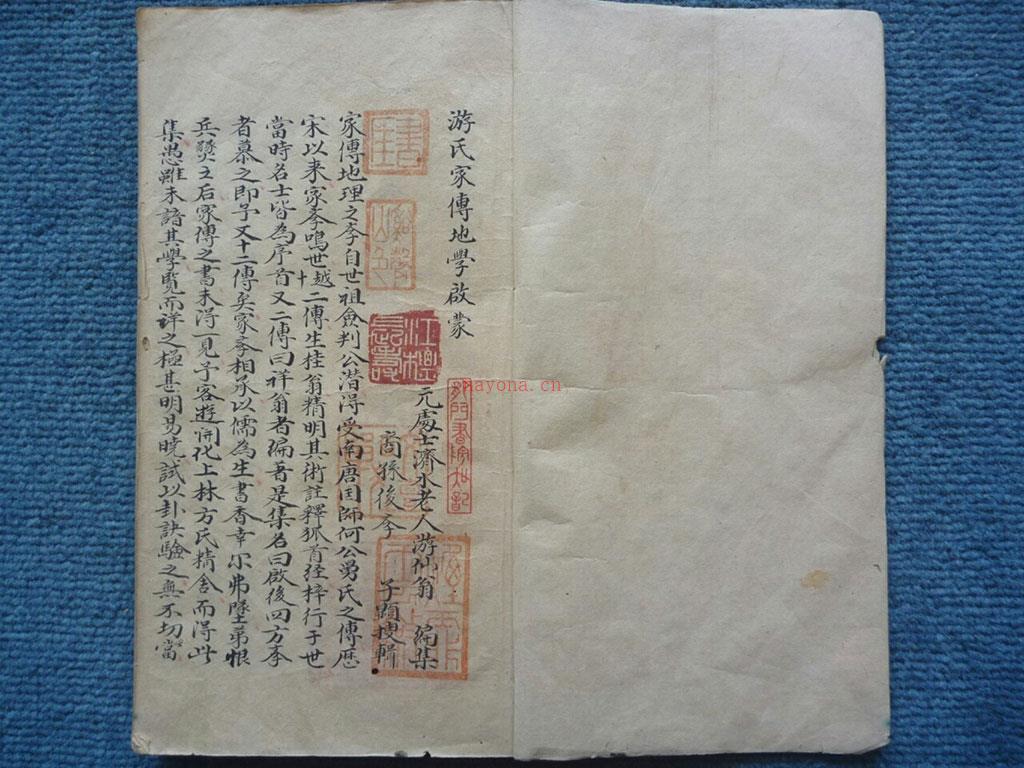 游氏家傳地學啟蒙
元處士濟水老人游仙翁 編集
裔孫後斈 子顕搜輯
家傳地理之斈自世祖僉判公潛得受南唐囯師何公舅氏之傳歴
宋以来家斈鳴世越十二傳生桂翁精明其術註釋狐首经梓行于世
當時名士皆為序首又二傳曰祥翁者编著是集名曰啟後四方斈
者慕之即予又十二傳矣家斈相承以儒為生書香幸尔弗墜第恨
兵燹之后家傳之書未得一見予客遊開化上林方氏精舍而得此
集愚雖未諳其學覧而详之極甚明易曉試以卦訣驗之無不切當
nayona.cn